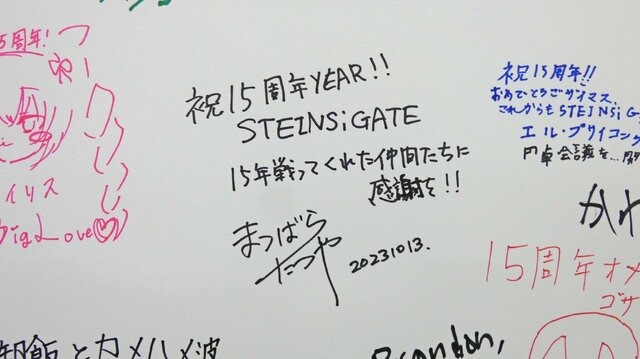 5周年!
イリス
Big Love
祝15周年YEAR!!
STEINS;GATE
15年戦ってくれた仲間たちに
感謝を!!
まつばら
たつや
20231013.
祝15周年!!
おめでとうございマス。
これからもSTEINS;G
エル・プサイコン
円卓会議を…
かわ
15周年オメ
ゴサ
卸飯とカメハメ波
Brandon,